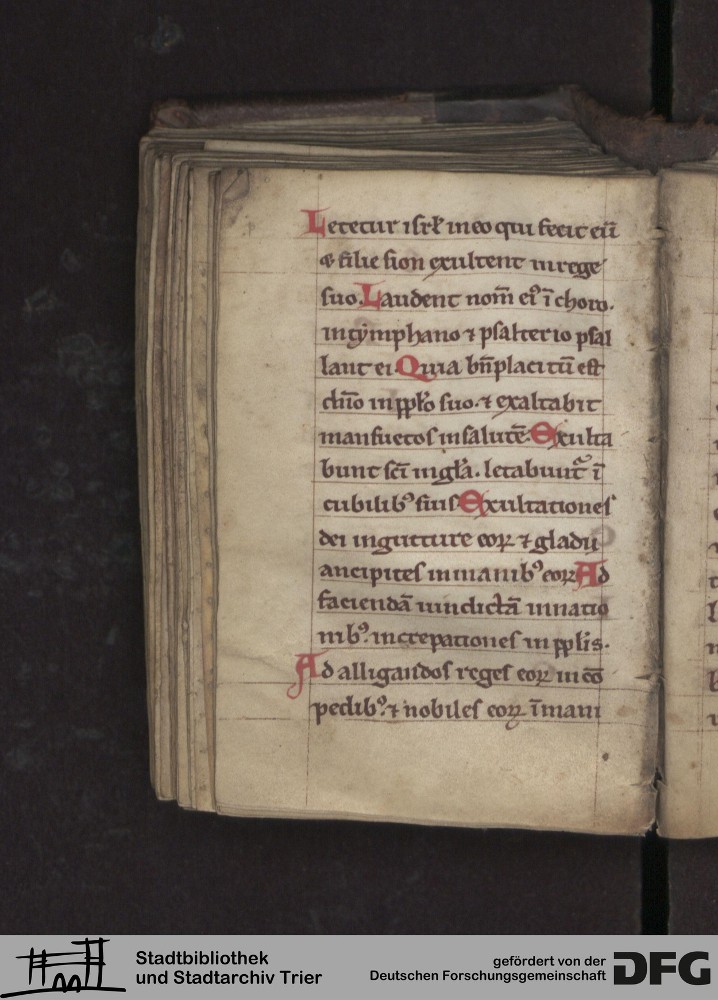 Letetur iſrł in eo qui fecit eū
& filie ſion exultent in rege
ſuo. Laudent nom̄ eiꝰ ī choro.
in tẏmphano ⁊ pſalterio pſal
lant ei. Quia bn̄placitū eſt
dn̄o in ppło ſuo. ⁊ exaltabit
manſuetos in ſalutē. Exulta
bunt ſcī in gła. letabunt̃ ī
cubilibꝰ ſuis Exultationeſ
dei in gutture eoꝝ ⁊ gladii
ancipites in manibꝰ eoꝝ Ad
faciendā uindictā in natio
nibꝰ. increpationeſ in ppłis.
Ad alligandos reges eoꝝ in cō
pedibꝰ. ⁊ nobiles eoꝝ ī mani
Stadtbibliothek
und Stadtarchiv Trier
gefördert von der
Deutschen Forschungsgemeinschaft
DFG